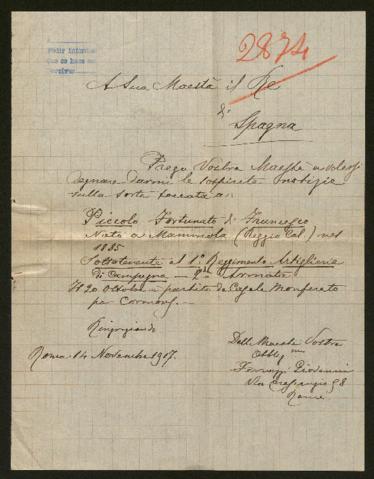 Pedir informes
que se hace con
2874
A Sua Maestà il Re
di
Spagna
Prego Vostra Maestà volersi
degnare darmi le notizie
sulla sorte toccata a:
Piccolo Fortunato di Francesco
Nato a Mammola (Reggio Cal.) nel
1895
Sottotenente al 1º Reggimento Artiglieria
di Campagna —
Il 20 Ottobre è partito da Casale Monferrato
per Cormons. —
Ringraziando
Roma 14 Novembre 1917.
Della Maestà Vostra
Obblig mo
Giovanni
Via 98
Roma